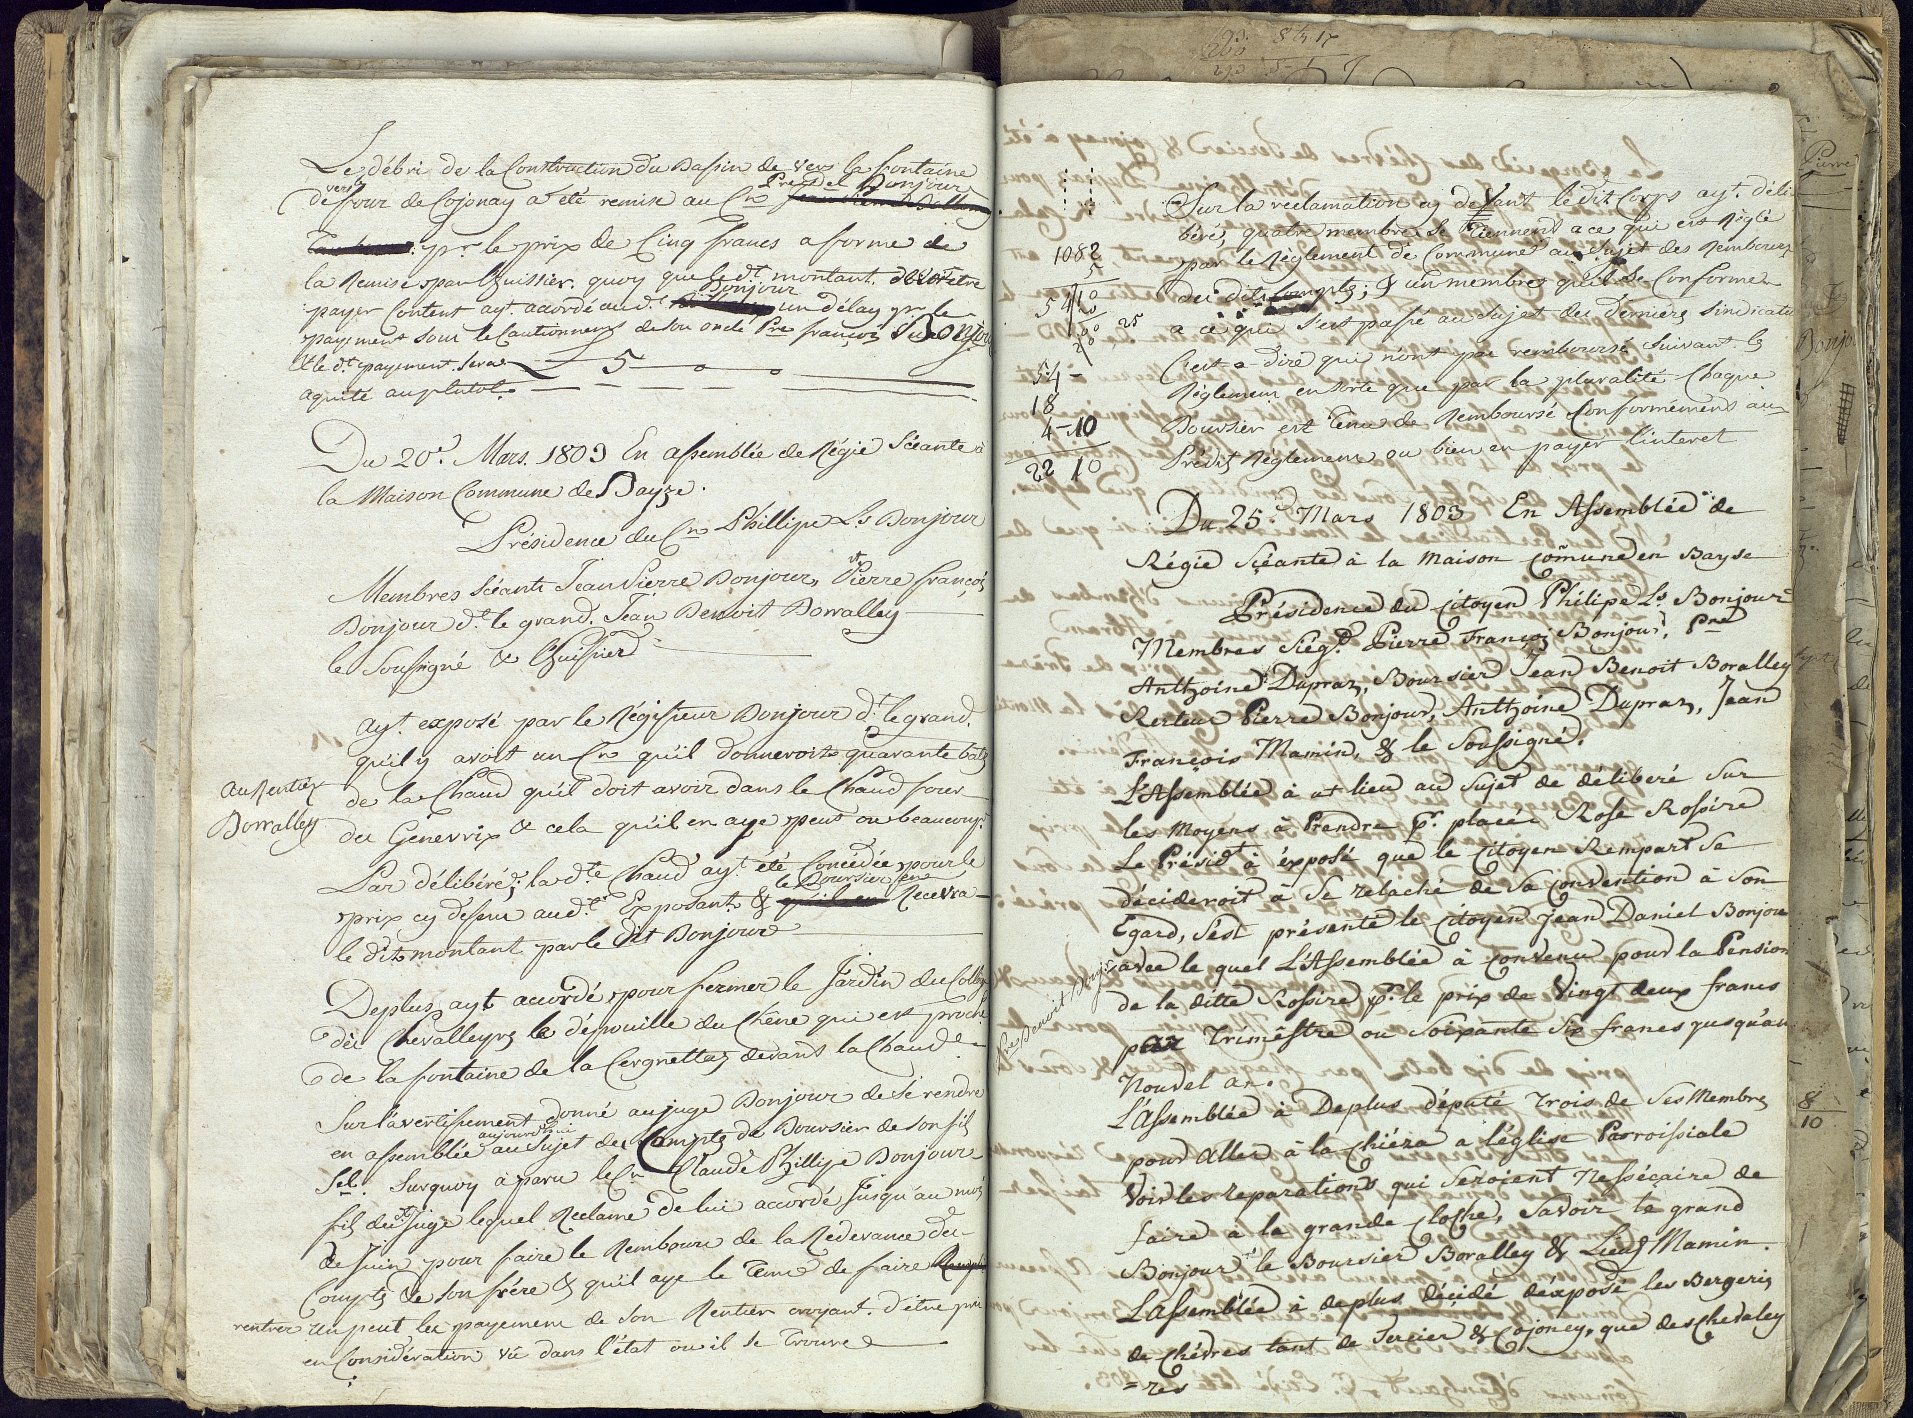 Le débri de la Construction du Bassin de vers la fontaine
vers le
Pre Del Bonjour
de four de Cojonay a été remise au Cn
pr le prix de Cinq francs a forme de
la Remise par l'huissier. quoy que le dt montant. devoit être
Bonjour
payer Content ayt accordé audt un délay pr le
payement sous le Cautionnemt de son oncle Pre françois Bonjour
& le dt payement sera 5
aquité au plutot.
Du 20e. Mars. 1803 En assemblée de Régie Scéante à
la Maison Commune de Bayse.
Présidence du Cn Phillipe Ls Bonjour
Membres Scéants Jean Pierre Bonjour, Pierre françois
Bonjour dt le grand. Jean Benoit Borralley
le Soussigné & l'huissier
ayt exposé par le Régisseur Bonjour dt le grand.
qu'il y avoit un Cn qu'il donneroit quarante batz
de la Chaud qu'il doit avoir dans le Chaud four
au Rentier
Borralley
du Genevrix & cela qu'il en aye peut ou beaucoup.
Par délibéré, la dte Chaud ayt été Concédée pour le
le Boursier en
prix cy dessu audt Exposant & Recevra
le dit montant par le dit Bonjour
Deplus ayt accordé pour fermer le Jardin du College
dès Chevalleyres la dépouille du Chêne qui est proche
de la fontaine de la Cergnettaz devant la Chaud
Sur l'avertissement donné au juge Bonjour de se rendre
aujourd'hui
en assemblée au Sujet des Compts de Boursier de son fils
Sel. Surquoy à paru le Cn Claude Phillipe Bonjour
fils du dt Juge lequel Reclame de lui accordé Jusqu'au mois
de Juin pour faire le Rembours de la Redevance des
Compts de son frére & qu'il aye le tems de faire
rentrer un peut les payemens de son Rentier croyant. d'être pris
en Considération vû dans l'état ou il se trouve
1082
5
54 10
20
100 25
20
54 -
18
4-10
22 10
Sur la reclamation cy devant le dit Corps ayt. déli
béré, quatre membres se tiennent a ce qui est Réglé
par le Réglement de Commune au sujet des Rembours
des dits Compts; & un membres qu'il se Conforme
a ce que s'est passé au sujet des derniers sindicats
C'est a dire qui n'ont pas remboursé suivant le
Réglement en sorte que par la pluralité Chaque
Boursier est tenu de Remboursé Conformément au
Prédit Réglement ou bien en payer l'interet
Du 25e. Mars 1803 En Assemblée de
Régie Scéante à la maison Comune en Bayse
Présidence du Citoyen Philipe Ls. Bonjour
Membres Siégt. Pierre François Bonjour, Pre
Anthoine Dupraz, Boursier Jean Benoit Boralley
Recteur Pierre Bonjour, Anthoine Dupraz, Jean
François Mamin, & le Soussigné.
L'Assemblée à ut lieu au Sujet de déliberé Sur
les moyens à Prendre pr. placér Rose Rossire
Le Présidt à éxposé que le Citoyen Rempart Se
décideroit à Se relaché de Sa Convention à Son
Egard, s'est présenté le Citoyen Jean Daniel Bonjour
avec le quel L'Assemblée à Convenu pour la Pension
de la ditte Rossire pr. le prix de Vingt deux francs
par trimestre ou Soixante Six francs jusqu'au
Nouvel an.
Pre Benoit Bonjr
L'Assemblée à Deplus députe trois de Ses Membres
pour Aller à la Chiéza a l'église Parroissiale
Voir les reparations qui Seroient Nessécaire de
faire à la grande Cloche, Savoir le grand
Bonjour le Boursier Boralley & Lieut Mamin.
L'assemblée à deplus décidé d'éxposé les Bergeries
de Chévres tant de Tercier & Cojoney, que des Chevaley
=res
Pierre
Bonjo
8
10